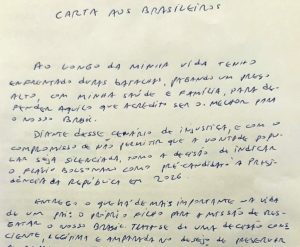 CARTA AOS BRASILEIROS
AO LONGO DA MINHA VIDA TENHO
ENFRENTADO DURAS BATALHAS, PAGANDO UM PREÇO
ALTO, COM MINHA SAÚDE E FAMÍLIA, PARA DE-
FENDER AQUILO QUE ACREDITO SER O MELHOR PARA
O NOSSO BRASIL.
DIANTE DESSE CENÁRIO DE INJUSTIÇA, E COM O
COMPROMISSO DE NÃO PERMITIR QUE A VONTADE POPU-
LAR SEJA SILENCIADA, TOMO A DECISÃO DE INDICAR
O FLÁVIO BOLSONARO COMO PRÉ-CANDIDATO À PRESI-
DÊNCIA DA REPÚBLICA EM 2026.
ENTREGO O QUE HÁ DE MAIS IMPORTANTE NA VIDA
DE UM PAI: O PRÓPRIO FILHO PARA A MISSÃO DE RES-
GATAR O NOSSO BRASIL. TRATA-SE DE UMA DECISÃO CONS-
CIENTE, LEGÍTIMA E AMPARADA NO DESEJO DE PRESERVAR